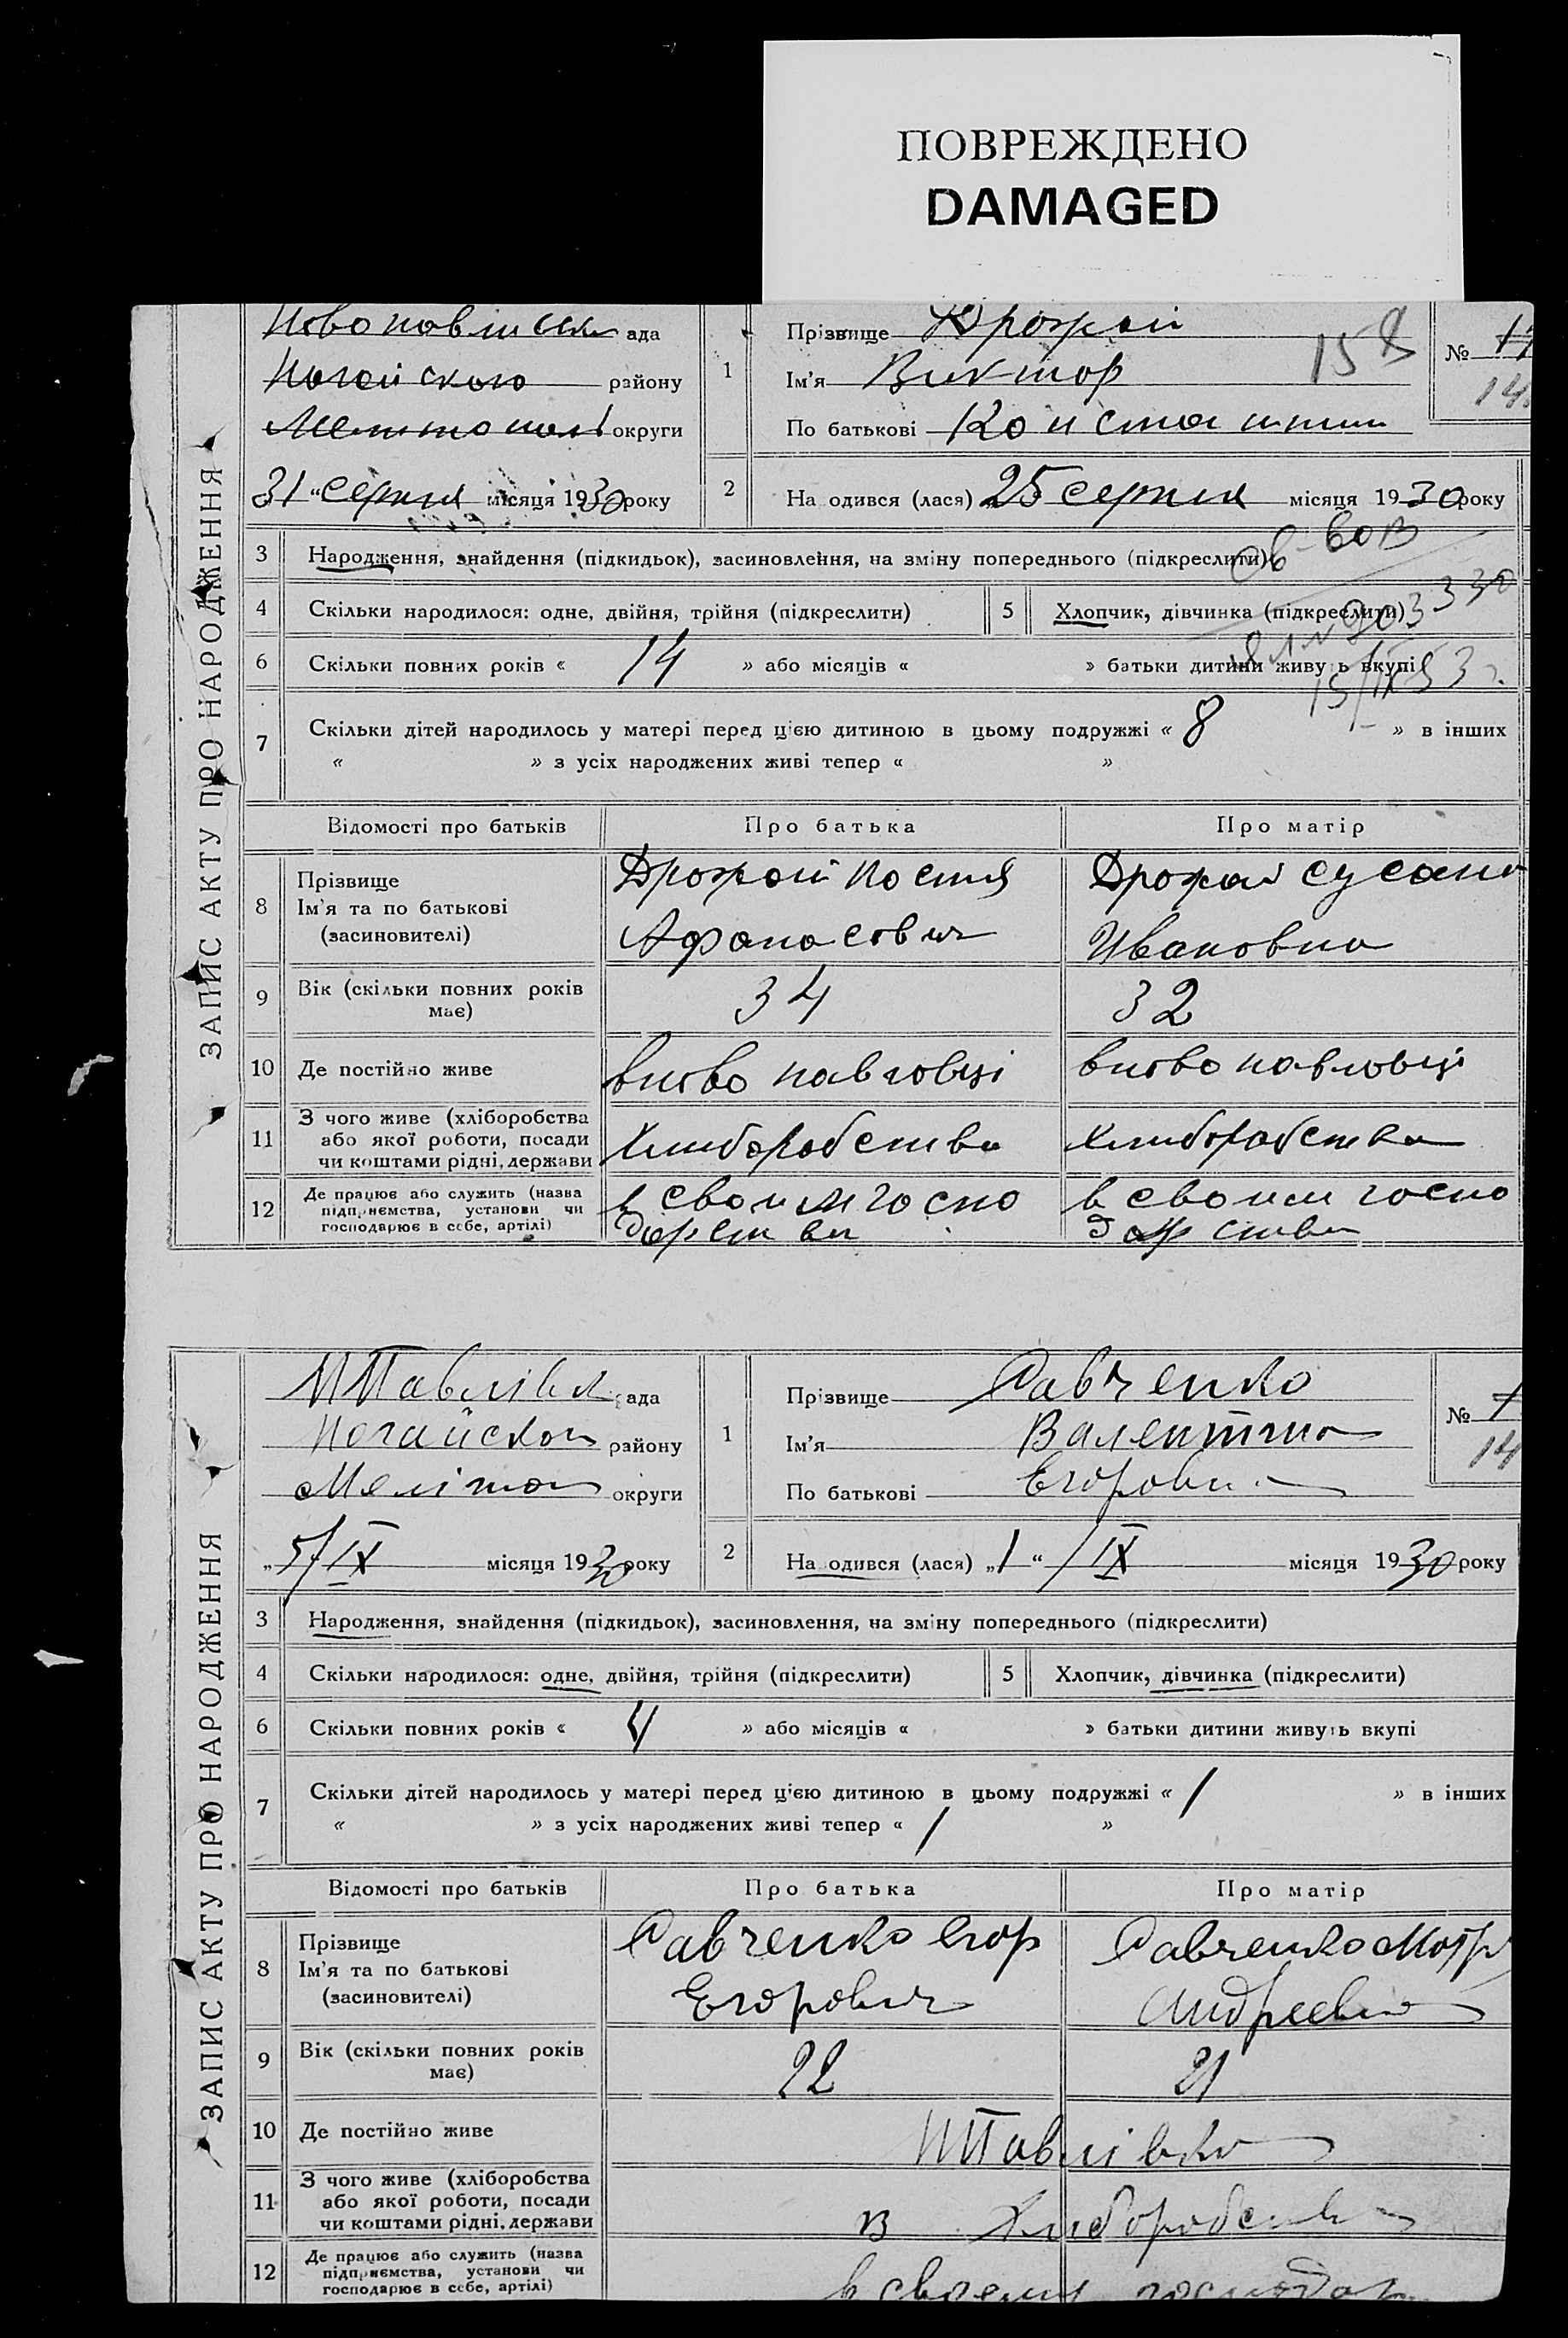 ПОВРЕЖДЕНО
DAMAGED
ЗАПИС АКТУ ПРО НАРОДЖЕННЯ
ада
Ногайского району
округи
31 "серпня місяця 1930 року
1
Прізвище Дрожжи
Ім'я Виктор
По батькові
158
№ 17
14
2
На одився (лася) 25 серпня місяця 1930 року
3 Народження, знайдення (підкидьок), засиновлення, на зміну попереднього (підкреслити)
4 Скільки народилося: одне, двійня, трійня (підкреслити) 5 Хлопчик, дівчинка (підкреслити)
6 Скільки повних років « 14 » або місяців « » батьки дитини живуть вкупі
15/IX 53 г.
7 Скільки дітей народилось у матері перед цією дитиною в цьому подружжі « 8 » в інших
« » з усіх народжених живі тепер « »
Відомості про батьків Про батька Про матір
8 Прізвище
Ім'я та по батькові
(засиновителі)
Афанасович
Сусана
Ивановна
9 Вік (скільки повних років має) 34 32
10 Де постійно живе вново павловці вново павловці
11 З чого живе (хліборобства
або якої роботи, посади
чи коштами рідні, держави
Хлиборобства хлиборобства
12 Де працює або служить (назва
підприємства, установи чи
господарює в себе, артілі)
в своим госпо
дарства
в своим госпо
дарства
ЗАПИС АКТУ ПРО НАРОДЖЕННЯ
НПавлівк ада
Ногайском району
Меліто округи
„5/IX місяця 1930 року
1
Прізвище Савченко
Ім'я Валентина
По батькові Егоровна
№ 1
14
2
На одився (лася) „1“ /IX місяця 1930 року
3 Народження, знайдення (підкидьок), засиновлення, на зміну попереднього (підкреслити)
4 Скільки народилося: одне, двійня, трійня (підкреслити) 5 Хлопчик, дівчинка (підкреслити)
6 Скільки повних років « 4 » або місяців « » батьки дитини живуть вкупі
7 Скільки дітей народилось у матері перед цією дитиною в цьому подружжі « 1 » в інших
« » з усіх народжених живі тепер « 1 »
Відомості про батьків Про батька Про матір
8 Прізвище
Ім'я та по батькові
(засиновителі)
Савченко Егор
Егорович
Савченко Мотр
Андреевна
9 Вік (скільки повних років має) 22 21
10 Де постійно живе НПавлівка
11 З чого живе (хліборобства
або якої роботи, посади
чи коштами рідні, держави
в Хлиборобства
12 Де працює або служить (назва
підприємства, установи чи
господарює в себе, артілі)
в своем господар